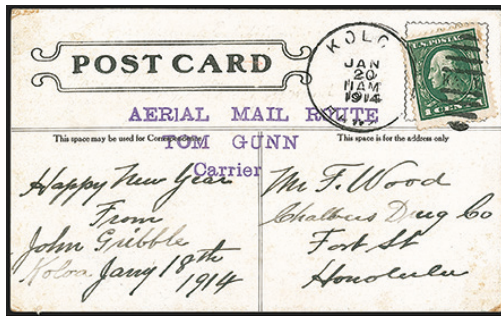 POST CARD
KOLO
JAN
20
11AM
1914
U.S. POSTAGE
1 CENT
AERIAL MAIL ROUTE
TOM GUNN
Carrier
This space may be used for Correspondence
This space is for the address only
Happy New Year
From
John Gribble
Koloa Jany 18th
1914
Mr F. Wood
Chalbers Drug Co
Fort St
Honolulu